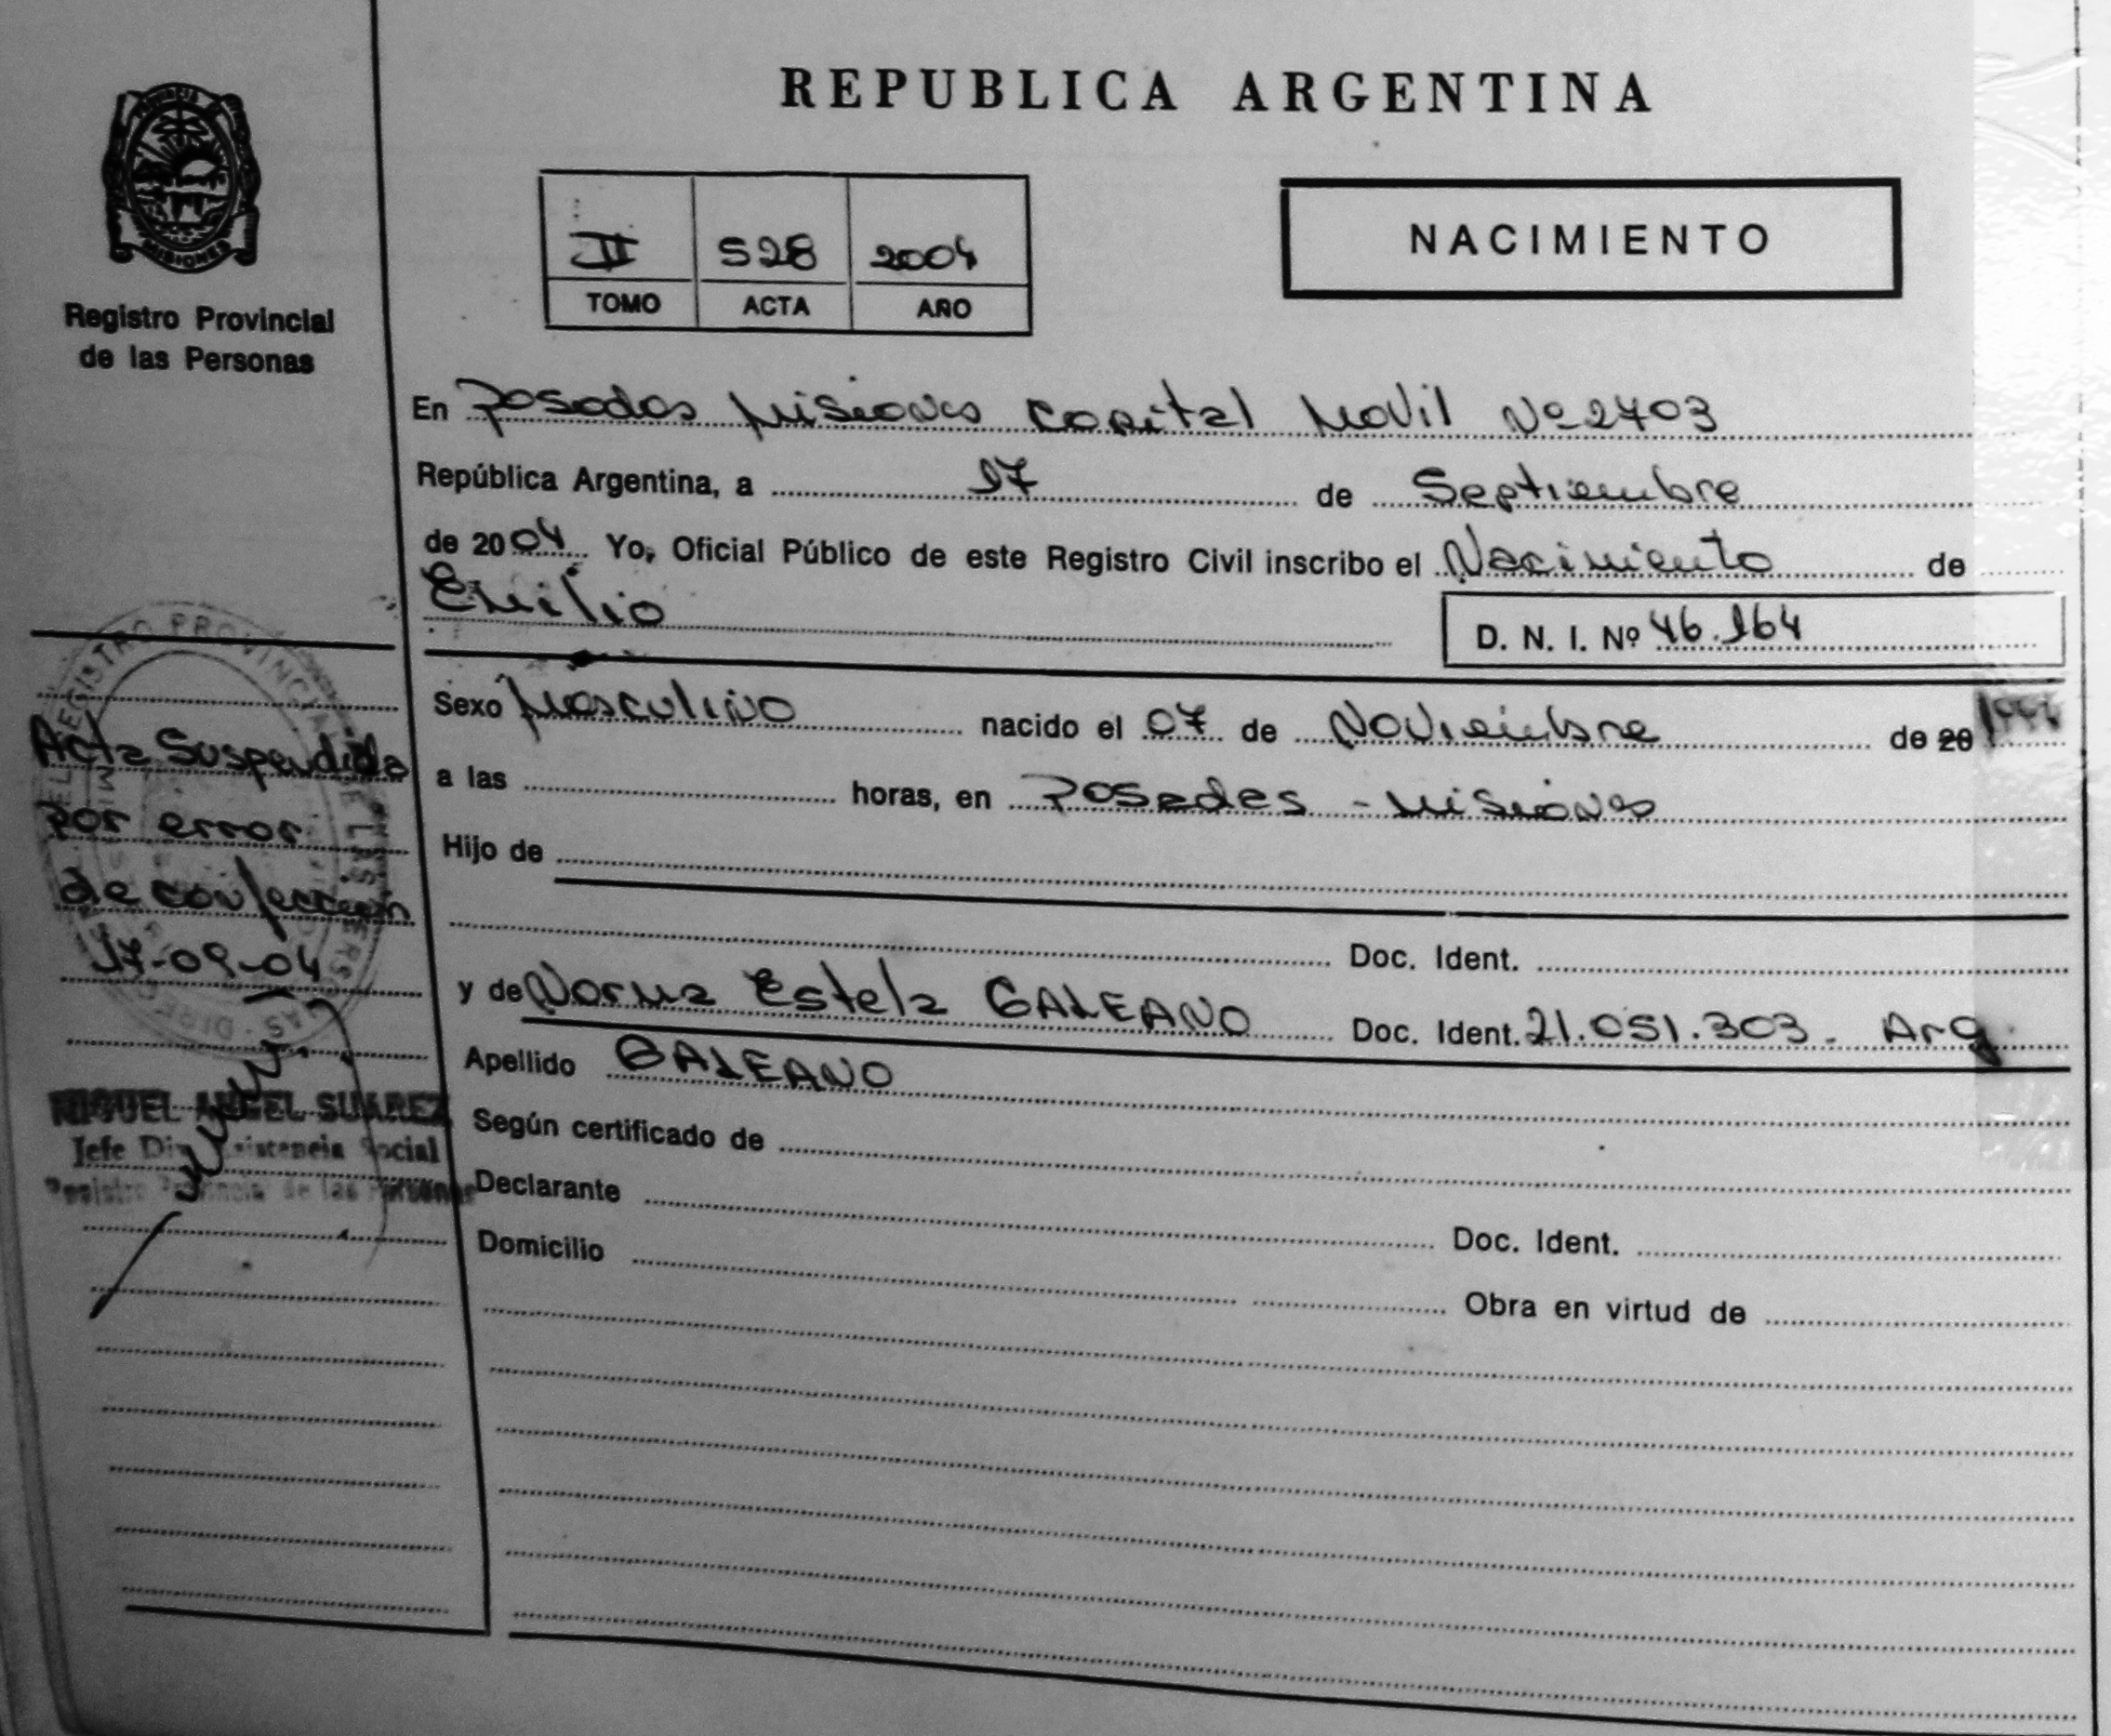 REPUBLICA ARGENTINA
MISIONES
Registro Provincial
de las Personas
II 528 2004
TOMO ACTA AÑO
NACIMIENTO
En Posadas Misiones Capital Movil Nº 2703
República Argentina, a 17 de Septiembre
de 2004 Yo, Oficial Público de este Registro Civil inscribo el Nacimiento de
Emilio
D. N. I. Nº 46.164
Sexo Masculino nacido el 07 de Noviembre de 20
a las horas, en Posadas - Misiones
Hijo de
Doc. Ident.
y de Norma Estela GALEANO Doc. Ident. 21.051.303. Arg
Apellido GALEANO
Según certificado de
Declarante
Doc. Ident.
Domicilio
Obra en virtud de
Acta Suspendida
por error
de confeccion
17-09-04
MIGUEL ANGEL SUAREZ
Jefe Asistencia Social
de las Personas